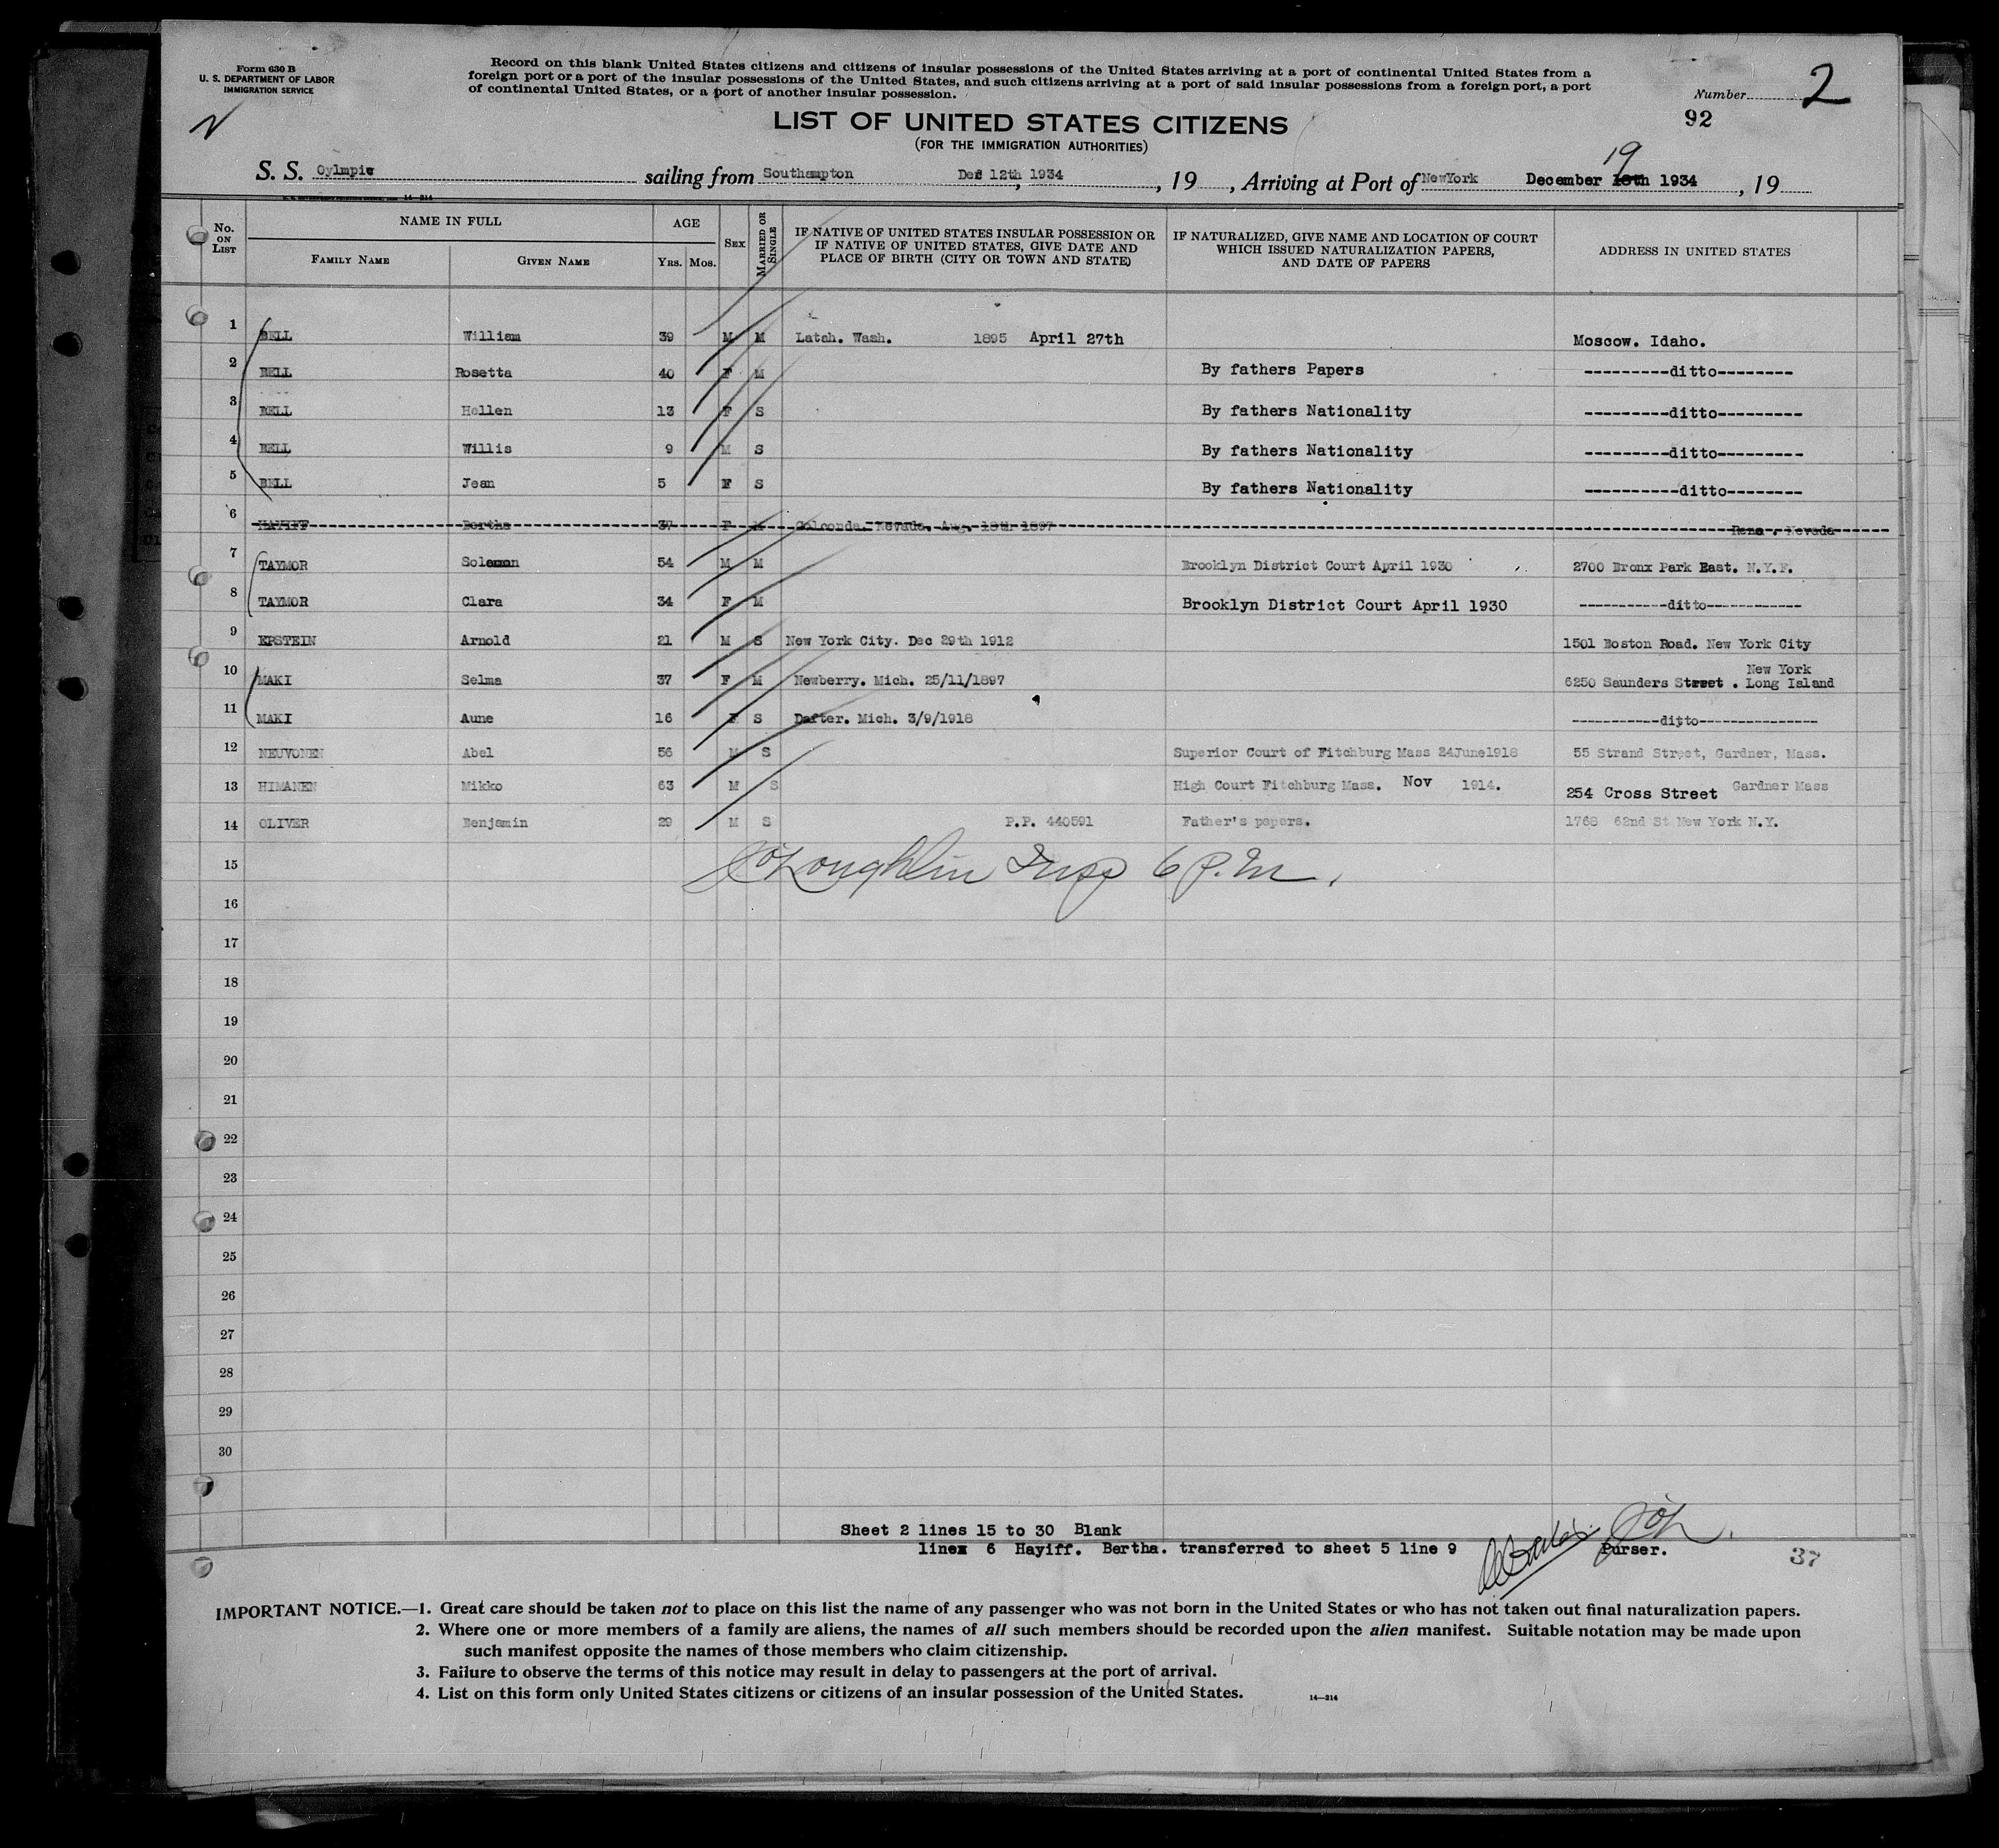 Form 630 B
U. S. DEPARTMENT OF LABOR
IMMIGRATION SERVICE
Record on this blank United States citizens and citizens of insular possessions of the United States arriving at a port of continental United States from a
foreign port or a port of the insular possessions of the United States, and such citizens arriving at a port of said insular possessions from a foreign port, a port
of continental United States, or a port of another insular possession.
Number 2
92
LIST OF UNITED STATES CITIZENS
(FOR THE IMMIGRATION AUTHORITIES)
19
S. S. Oylmpic sailing from Southampton Dec 12th 1934, 19 , Arriving at Port of NewYork December 18th 1934, 19
14-314
No. ON LIST NAME IN FULL AGE SEX MARRIED OR SINGLE IF NATIVE OF UNITED STATES INSULAR POSSESSION OR IF NATIVE OF UNITED STATES, GIVE DATE AND PLACE OF BIRTH (CITY OR TOWN AND STATE) IF NATURALIZED, GIVE NAME AND LOCATION OF COURT WHICH ISSUED NATURALIZATION PAPERS, AND DATE OF PAPERS ADDRESS IN UNITED STATES
FAMILY NAME GIVEN NAME YRS. MOS.
1 BELL William 39 M M Latah. Wash. 1895 April 27th Moscow. Idaho.
2 BELL Rosetta 40 F M By fathers Papers ---------ditto--------
3 BELL Hellen 13 F S By fathers Nationality ---------ditto---------
4 BELL Willis 9 M S By fathers Nationality ---------ditto---------
5 BELL Jean 5 F S By fathers Nationality ----------ditto--------
6 HAYIFF Bertha 37 F M Golconda. Nevada. Aug. 18th 1897 Reno . Nevada
7 TAYMOR Solemon 54 M M Brooklyn District Court April 1930 2700 Bronx Park East. N.Y.F.
8 TAYMOR Clara 34 F M Brooklyn District Court April 1930 -----------ditto------------
9 EPSTEIN Arnold 21 M S New York City. Dec 29th 1912 1501 Boston Road. New York City
10 MAKI Selma 37 F M Newberry. Mich. 25/11/1897 6250 Saunders Street . New York Long Island
11 MAKI Aune 16 F S Dafter. Mich. 3/9/1918 -----------ditto---------------
12 NEUVONEN Abel 56 M S Superior Court of Fitchburg Mass 24June1918 55 Strand Street, Gardner, Mass.
13 HIMANEN Mikko 63 M S High Court Fitchburg Mass. Nov 1914. 254 Cross Street Gardner Mass
14 OLIVER Benjamin 29 M S P.P. 440591 Father's papers. 1768 62nd St New York N.Y.
15 O'Loughlin Insp 6 P.M.
16
17
18
19
20
21
22
23
24
25
26
27
28
29
30
Sheet 2 lines 15 to 30 Blank
line 6 Hayiff. Bertha. transferred to sheet 5 line 9 Purser.
37
IMPORTANT NOTICE.—1. Great care should be taken not to place on this list the name of any passenger who was not born in the United States or who has not taken out final naturalization papers.
2. Where one or more members of a family are aliens, the names of all such members should be recorded upon the alien manifest. Suitable notation may be made upon
such manifest opposite the names of those members who claim citizenship.
3. Failure to observe the terms of this notice may result in delay to passengers at the port of arrival.
4. List on this form only United States citizens or citizens of an insular possession of the United States. 14—314